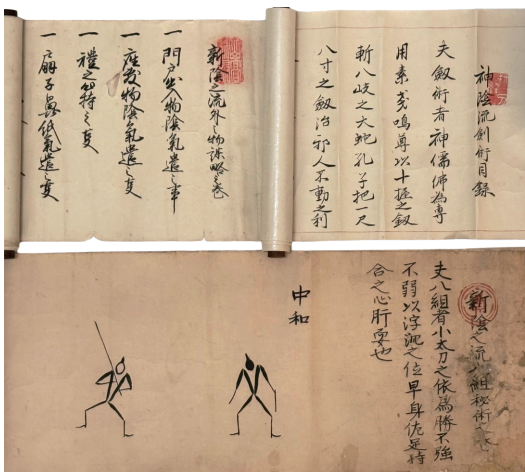 神陰流剣術目録
夫剱術者神儒佛為専
用素戔嗚尊以十握之剱
斬八岐之大蛇孔子把一尺
八寸之剱治邪人不動之利
新陰之流外物謀略之巻
一門戸出入物陰氣遣之事
一座敷物陰氣遣之事
一禮之時之事
一扇子鼻紙氣遣之事
新陰之流八組秘術之
夫八組者小太刀之依為勝不強
不弱以浮沉之位早身佐足持
合之心肝要也
中和